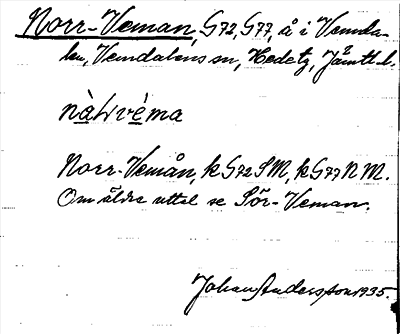 Norr-Veman, G72, G77, å i Vemda-
len, Vemdalens sn, Hedetg, Jämtl.l.
nàrvèma
Norr-Vemån, k G72 SM, k G77 NM.
Om äldre uttal se Sör-Veman.
Johan Andersson 1935.